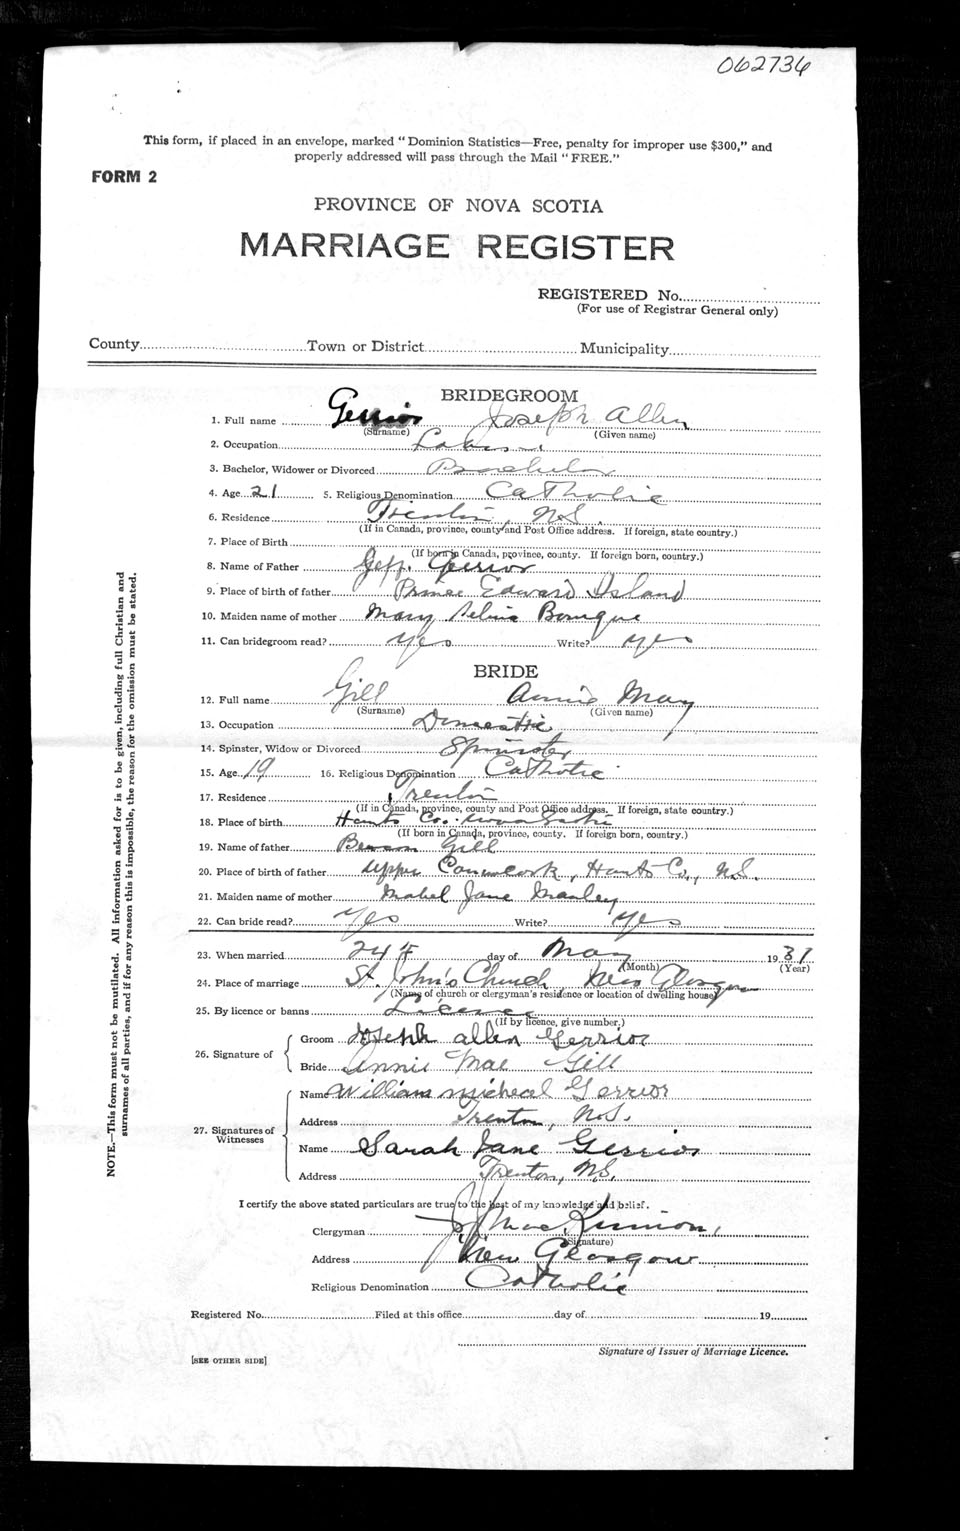 062736
This form, if placed in an envelope, marked "Dominion Statistics—Free, penalty for improper use $300," and
properly addressed will pass through the Mail "FREE."
FORM 2
PROVINCE OF NOVA SCOTIA
MARRIAGE REGISTER
REGISTERED No.
(For use of Registrar General only)
County Town or District Municipality
BRIDEGROOM
1. Full name Gerrior Joseph Allen
(Surname) (Given name)
2. Occupation
3. Bachelor, Widower or Divorced Bachelor
4. Age 21 5. Religious Denomination Catholic
6. Residence Trenton, N.S.
(If in Canada, province, county and Post Office address. If foreign, state country.)
7. Place of Birth
(If born in Canada, province, county. If foreign born, country.)
8. Name of Father Geff. Gerrior
9. Place of birth of father Prince Edward Island
10. Maiden name of mother Mary Selina Bourque
11. Can bridegroom read? Yes Write? Yes
BRIDE
12. Full name Gill Annie May
(Surname) (Given name)
13. Occupation Domestic
14. Spinster, Widow or Divorced Spinster
15. Age 19 16. Religious Denomination Catholic
17. Residence Trenton
(If in Canada, province, county and Post Office address. If foreign, state country.)
18. Place of birth Hants Co. Nova Scotia
(If born in Canada, province, county. If foreign born, country.)
19. Name of father Gill
20. Place of birth of father Upper Hants Co., N.S.
21. Maiden name of mother Mabel Jane Manley
22. Can bride read? Yes Write? Yes
23. When married 24th day of May 1931
(Month) (Year)
24. Place of marriage St. John's Church New Glasgow
(Name of church or clergyman's residence or location of dwelling house)
25. By licence or banns Licence
(If by licence, give number.)
26. Signature of
Groom Joseph allen Gerrior
Bride Annie Mae Gill
27. Signatures of Witnesses
Name William micheal Gerrior
Address Trenton, N.S.
Name Sarah Jane Gerrior
Address Trenton, N.S.
I certify the above stated particulars are true to the best of my knowledge and belief.
Clergyman MacKinnon,
(Signature)
Address New Glasgow
Religious Denomination Catholic
Registered No. Filed at this office day of 19
Signature of Issuer of Marriage Licence.
[SEE OTHER SIDE]
NOTE.—This form must not be mutilated. All information asked for is to be given, including full Christian and
surnames of all parties, and if for any reason this is impossible, the reason for the omission must be stated.